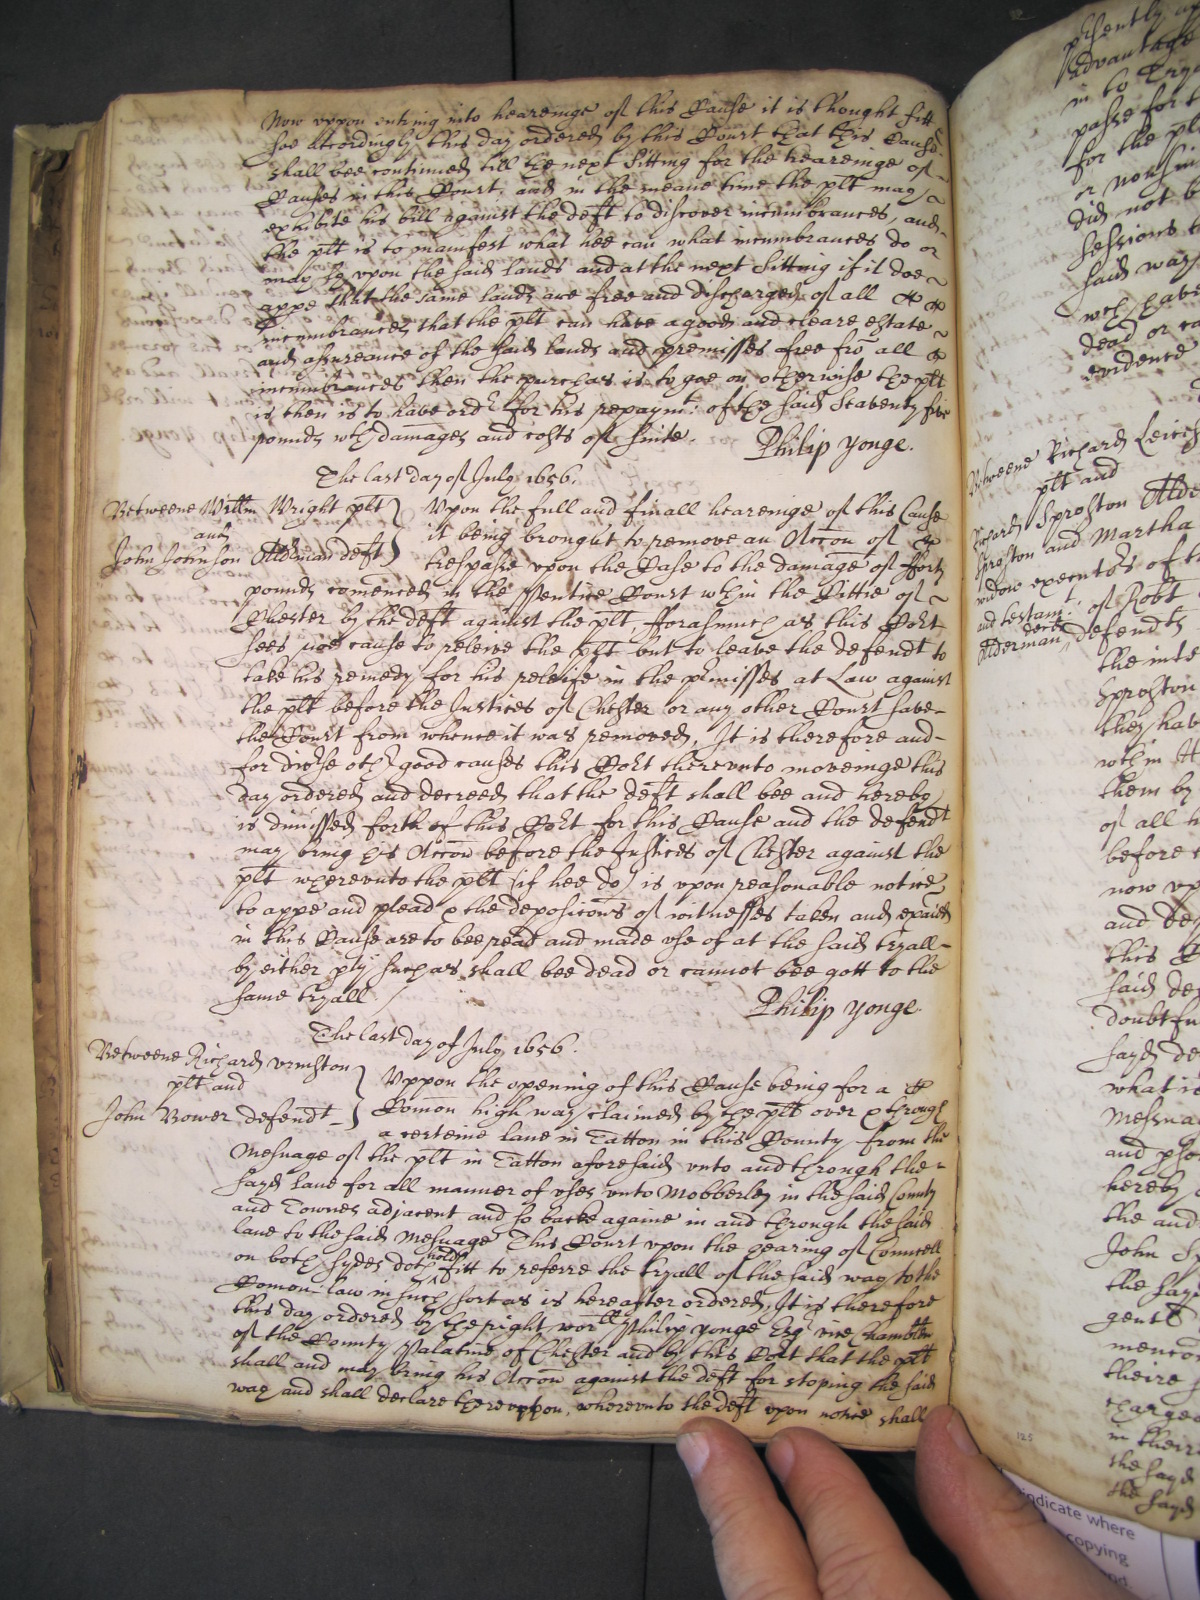 Now vppon entring into heareinge of this Cause it is thought fitt
soe accordingly this day ordered by this Court that this Cause
shall bee continued till the next Sitting for the heareinge of
Causes in this Court, and in the meane time the plt may
exhibite his bill against the deft to discover incumbrances, and
the plt is to manifest what hee can what incumbrances do or
may be vpon the said lands and at the next Sitting if it doe
appe that the same lands are free and discharged of all
incumbrances that the plt can have a good and cleare estate
and assureance of the said lands and premisses free fro all
incumbrances then the purchas is to goe on otherwise the plt
is then is to have ordr for his repaymt: of the said Seaventy five
pounds wth damages and costs of suite. Philip Yonge.
The last day of July 1656.
Betweene Willm Wright plt
and
John Johnson Alderman deft
Vpon the full and finall heareinge of this Cause
it being brought to remove an Accon of
trespasse vpon the Case to the damage of fforty
pounds comenced in the Pentice Court wthin the Cittie of
Chester by the deft against the plt fforasmuch as this Cort
sees noe cause to releive the plt but to leave the defendt to
take his remedy for his releife in the pmisses at Law against
the plt before the Justices of Chester or any other Court save
the Court from whence it was removed, It is therefore and
for diverse other good causes this Cort therevnto moveinge this
day ordered and decreed that the deft shall bee and hereby
is dimissed forth of this Cort for this Cause and the defendt
may bring his Accon before the Justices of Chester against the
plt wherevnto the plt (if hee do) is vpon reasonable notice
to appe and plead & the deposicons of witnesses taken and exaied
in this Cause are to bee read and made vse of at the said tryall
by either pty such as shall bee dead or cannot bee gott to the
same tryall / Philip Yonge.
The last day of July 1656.
Betweene Richard Vrmston
plt and
John Bower defendt
Vppon the opening of this Cause being for a
Comon high way claimed by the plt over & through
a certeine lane in Tatton in this County from the
Mesuage of the plt in Tatton aforesaid vnto and through the
sayd lane for all manner of vses vnto Mobberley in the said County
and Townes adjacent and so backe againe in and through the said
lane to the said Mesuage This Court vpon the hearing of Councell
on both sydes doth hold fitt to referre the tryall of the said way to the
Comon law in such sort as is hereafter ordered, It is therefore
this day ordered by the right worll Philip Yonge Esqr vice Chamblen
of the County Palatine of Chester and by this Cort that the plt
shall and may bring his Accon against the deft for stoping the said
way and shall declare therevppon, wherevnto the deft vpon notice shall
advantage
passe for
for the pl
did not b
Sessions
said way
dead or ca
evidence
Betweene Richard Leice
plt and
Sproston Alde
Sproston and Martha
widow executors of t
and testamt of Robt
Alderman decd defendts
the inte
Sproston
they hav
wthin
them by
of all
before
now vp
and de
this
said de
doubtfu
sayd de
what is
Mesua
and
hereby
the and
John S
the say
gent
mencon
theire
charge
in theire
the sayd
the sayd
125
indicate where
copying